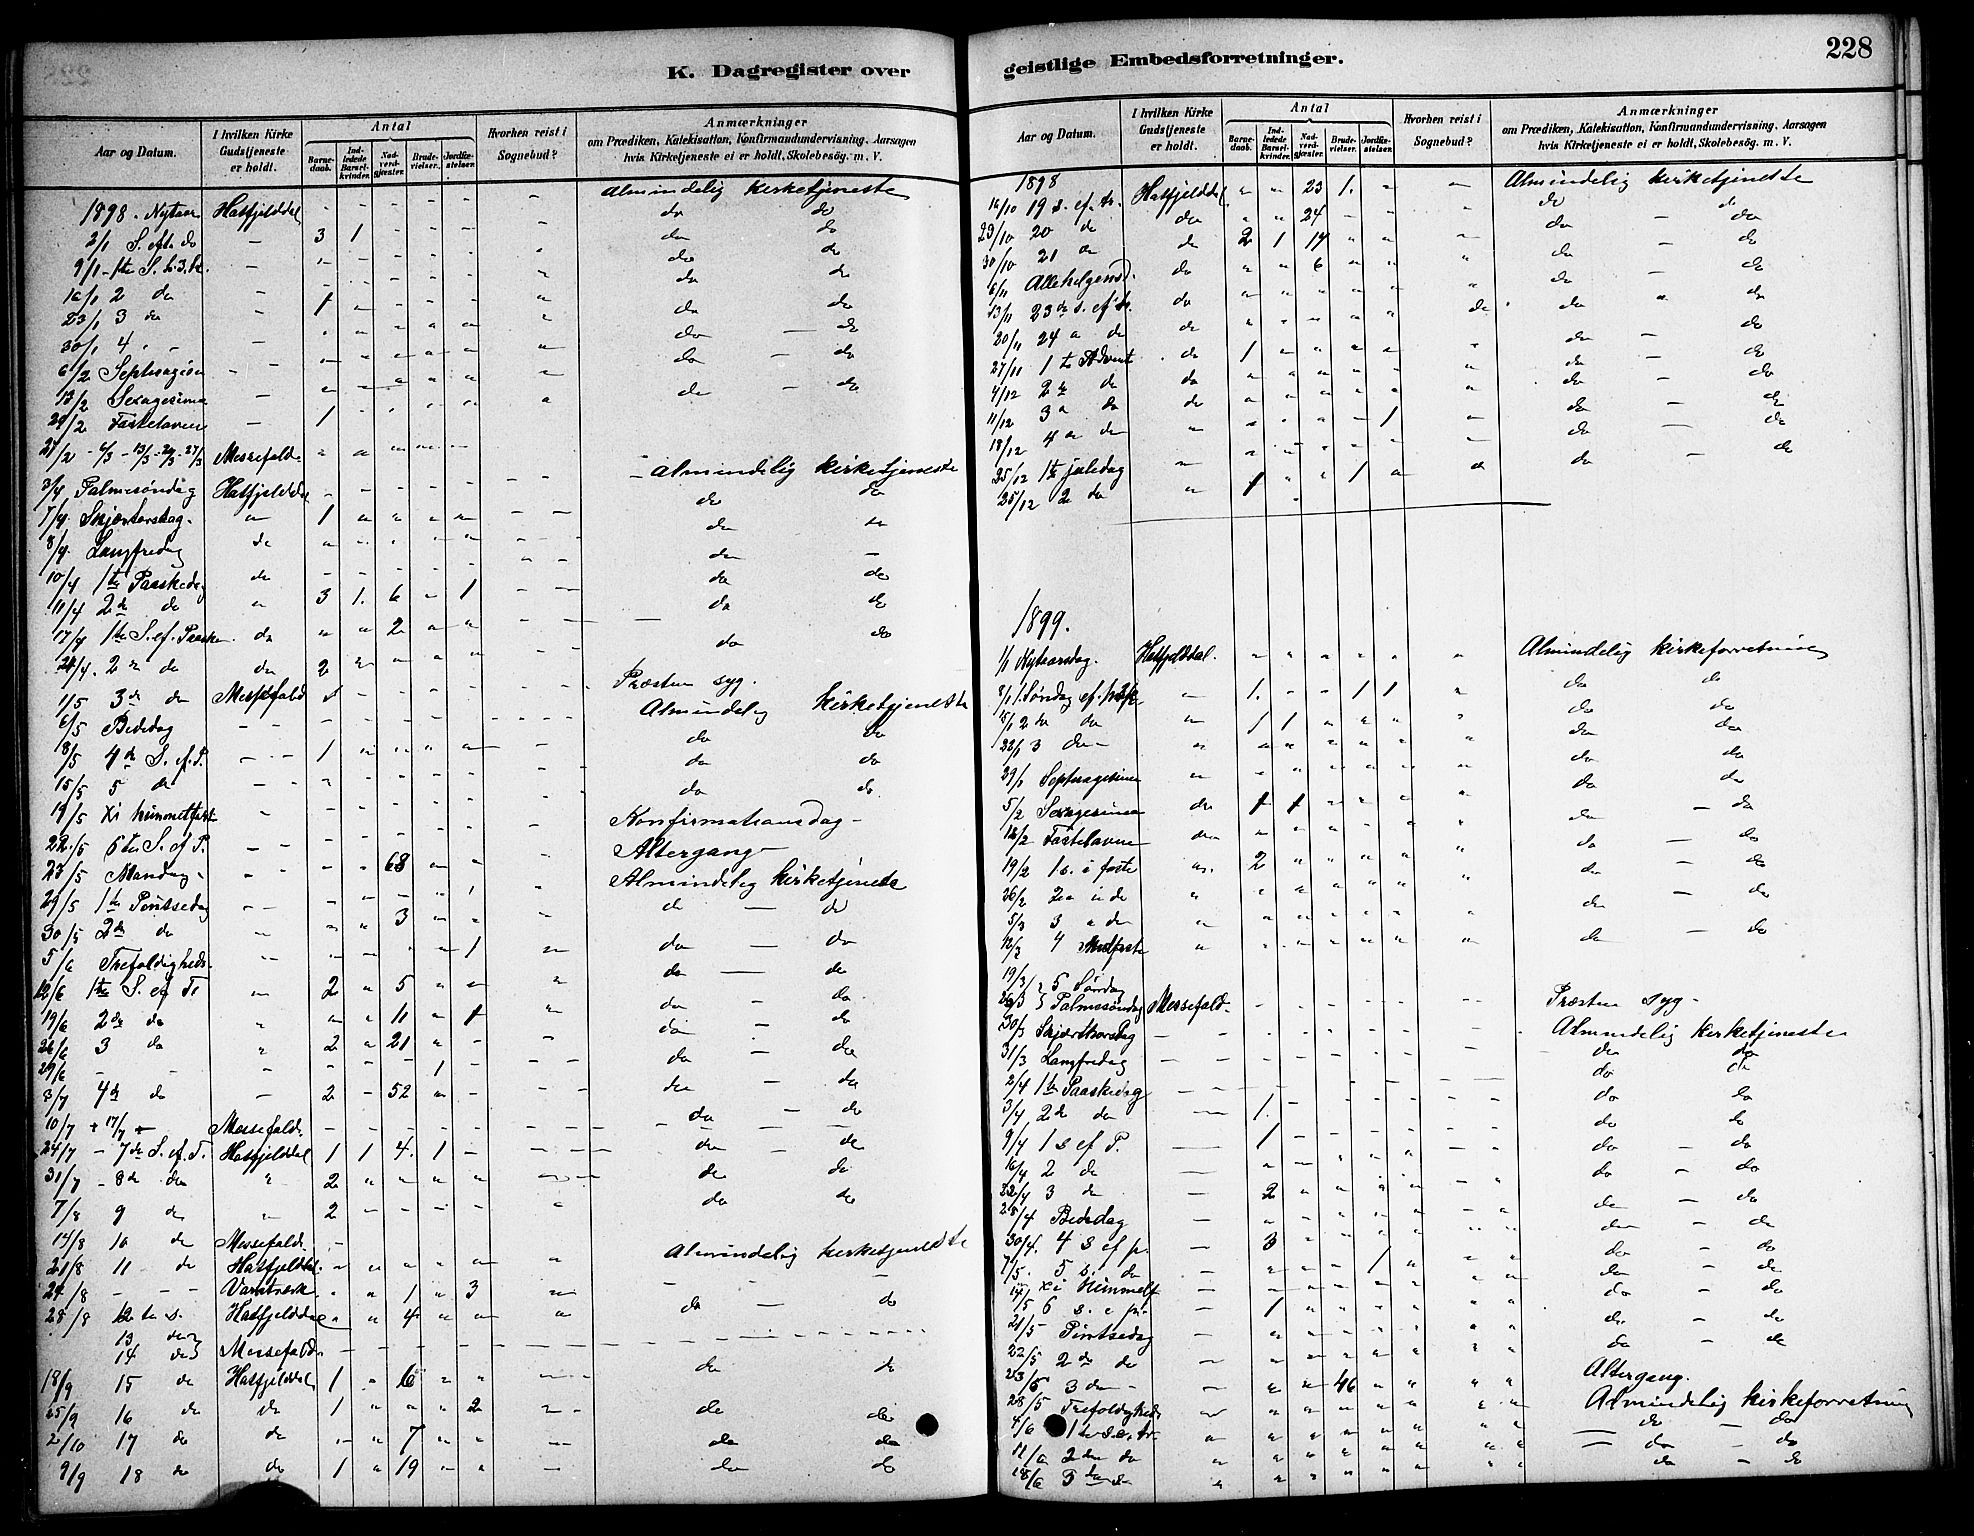 K. Dagregister over
Aar og Datum.
I hvilken Kirke Gudstjeneste er holdt.
Antal
Barnedaab.
Indledede Barselkvinder.
Nadverdgjæster.
Brudevielser.
Jordfæstelser.
Hvorhen reist i Sognebud?
Anmærkninger
om Prædiken, Katekisation, Konfirmandundervisning, Aarsagen
hvis Kirketjeneste ei er holdt, Skolebesög. m. V.
1898. Nytaar Hatfjelddal Almindelig kirketjeneste
2/1 S. eft. do – 3 1 do do
9/1 – 1te S. h. 3. k. – do do
16/1 2 do – do do
23/1 3 do – 1 do do
30/1 4 – do do
6/2 Septuagesi do do
13/2 Sexagesima – do – do
20/2 Fastelaven – 1 do – do
27/2 – 6/3 – 13/3 – 20/3 – 27/3 Messefald
3/4 Palmesøndag Hatfjelddal Almindelig kirketjeneste
7/4 Skjærtorsdag – 1 do do
8/4 Langfredag do do
10/4 1te Paaskedag do do
11/4 2de do 3 1. 6 1 do do
17/4 1te S. ef. Paaske do 2 do do
24/4. 2de do do 2 do do
1/5 3de do Messefald Præsten syg.
6/5 Bededag – Almindelig kirketjeneste
8/5 4de S. ef. P. – 1 do do
15/5 5 do – do do
19/5 Xi himmelfart do do
22/5 6te S. ef P. – Konfirmationsdag –
23/5 Mandag – 68 Altergang –
29/5 1te Pintsedag – 1 Almindelig kirketjeneste
30/5 2de do 3 do – do
5/6 Trefoldigheds. 1 do – do
12/6 1te S. ef Tr 2 5 do – do
19/6 2de do 11 1 do – do
26/6 3 do 2 21 do – do
29/6 – – 1 do – do
3/7 4de do – 2 52 do – do
10/7 + 17/7 – Messefald. do – do
24/7 – 7de S. ef. T. Hatfjelddal 1 1 4. 1 do do
31/7 – 8de do 2 do do
7/8 9 do 2 do do
14/8 10 do Messefald.
21/8 11 do Hatfjelddal. Almindelig kirketjeneste
24/8 – – – 1 3 – – –
28/8 12te s. Hatfjelddal 4 do – do
13 do
14 do } Messefald.
18/9 15 do Hatfjelddal 1 6 do do
25/9 16 do do 1 2 do do
2/10 17 do do 7 do do
9/9 18 do do 1 19 do do
geistlige Embedsforretninger.
228
Aar og Datum.
I hvilken Kirke Gudstjeneste er holdt.
Antal
Barnedaab.
Indledede Barselkvinder.
Nadverdgjæster.
Brudevielser.
Jordfæstelser.
Hvorhen reist i Sognebud?
Anmærkninger
om Prædiken, Katekisation, Konfirmandundervisning, Aarsagen
hvis Kirketjeneste ei er holdt, Skolebesög. m. V.
1898
16/10 19 s. ef. tr. Hatfjelddal 23 1. Almindelig kirketjeneste
23/10 20 do do 24 do do
30/10 21 do 2 1 14 do – do
6/11 Allehelgensd. do 6 do – do
13/11 23de s. ef tr. do do – do
20/11 24 do do do do do
27/11 1te Advent do 1 do – do
4/12 2de do do do – do
11/12 3 do do do – do
18/12 4 do 1 do – do
25/12 1te juledag do – do
25/12 2 do 1 1 do do – do
1899.
1/1 Nytaarsdag. Hatfjelddal. Almindelig kirkeforretning
8/1 1. Søndag ef. – 1. 1 1 do do
15/1 2 do 1 1 do do
22/1 3 do – do do
29/1 Septuagesima do do
5/2 Sexagesima do 1 1 do do
12/2 Fastelaven do do – do
19/2 1 s. i faste 2 do – do
26/2 2 i do do – do
5/3 3 do do – do
12/3 4 Midfaste do – do
19/3 } 5 Søndag
26/3 } Palmesøndag Messefald. Præsten syg –
30/3 Skjærthorsdag – Almindelig kirketjeneste
31/3 Langfredag do do
2/4 1te Paaskedag do do
3/4 2de do – 1. do do
9/4 1 s ef P. – 1 do do
16/4 2 do – do – do
22/4 3 do – 2 do – do
28/4 Bededag – do – do
30/4. 4 s ef p. – 3 do – do
7/5. 5 s. do – 1 do – do
Xi Himmelf do – do
14/5 6 s. e p. – 1 do – do
21/5 Pintsedag – do – do
22/5 2de do – do – do
23/5 3 do – – 46 Altergang.
28/5 Trefoldigheds Almindelig kirkeforretning
4/6 1te s. e. tr. do – do
11/6 2den do – do – do
18/6 3 do do – do